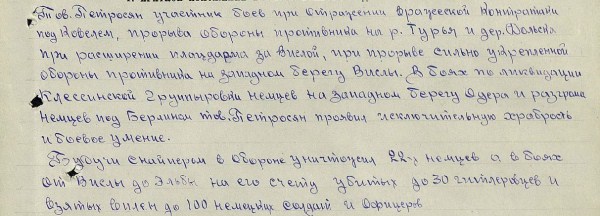 Тов. Петросян участник боев при отражении вражеской контратаки
под Ковелем, прорыва обороны противника на р. Турья и дер. Дольск
при расширении плацдарма за Вислой, при прорыве сильно укрепленной
обороны противника на западном берегу Вислы. В боях по ликвидации
Клессинской группировки немцев на западном берегу Одера и разгрома
немцев под Берлином тов. Петросян проявил исключительную храбрость
и боевое умение.
Будучи снайпером в обороне уничтожил 22 немцев а в боях
от Вислы до Эльбы на его счету убитых до 30 гитлеровцев и
взятых в плен до 100 немецких солдат и офицеров